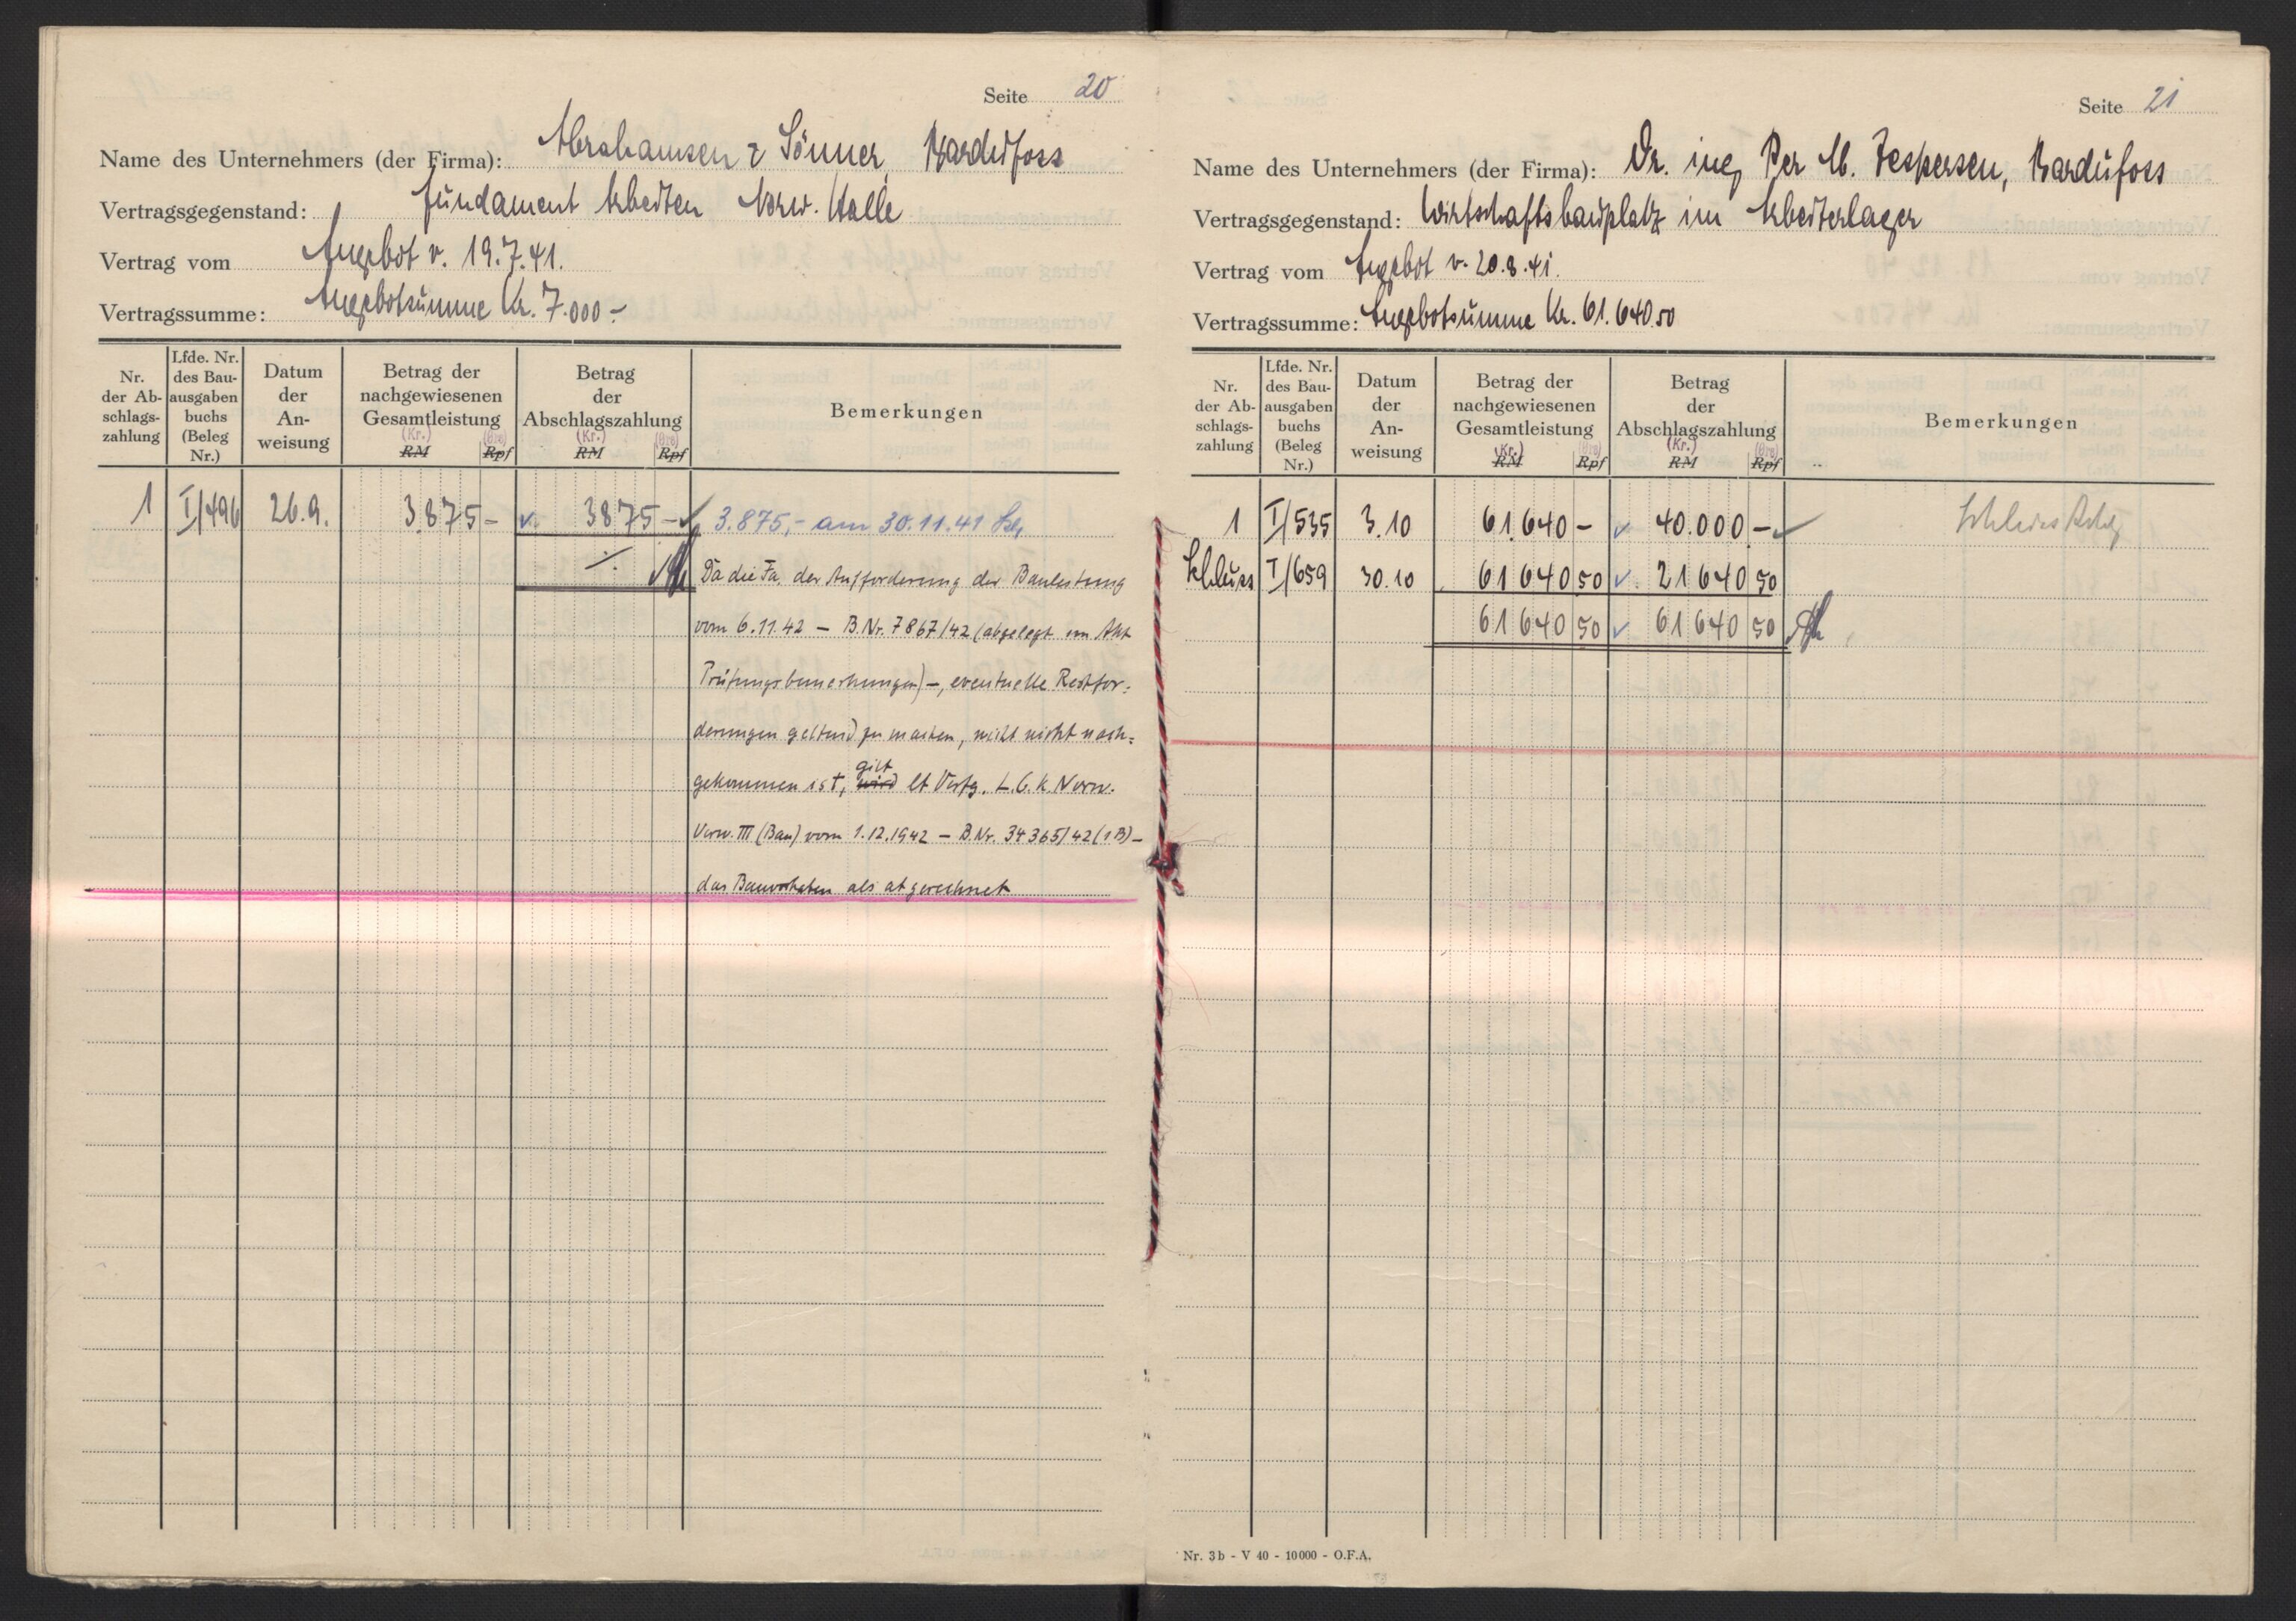 Seite 20
Name des Unternehmers (der Firma): Abrahamsen & Sönner, Bardufoss
Vertragsgegenstand: Fundament Arbeiten Norw. Halle
Vertrag vom Angebot v. 19.7.41.
Vertragssumme: Angebotsumme Kr. 7.000.-
Nr. der Abschlags-zahlung
Lfde. Nr. des Bau-ausgaben buchs (Beleg Nr.)
Datum der An-weisung
Betrag der nachgewiesenen Gesamtleistung
(Kr.) (Øre)
RM Rpf
Betrag der Abschlagszahlung
(Kr.) (Øre)
RM Rpf
Bemerkungen
1 I/496 26.9. 3.875 - 3875 - 3.875,- am 30.11.41
Da die Fa. der Aufforderung der Bauleitung
vom 6.11.42 - B.Nr. 7867/42 (abgelegt im Akt
Prüfungsbemerkungen) -, eventuelle Restfor=
derungen geltend zu machen, nicht nach=
gekommen ist, wird gilt lt Verfg. L.G.K. Norw.
Verw. III (Bau) vom 1.12.1942 - B.Nr. 34365/42 (1B) -
das Bauvorhaben als abgerechnet
Seite 21
Name des Unternehmers (der Firma): Dr. ing. Per M. Jespersen, Bardufoss
Vertragsgegenstand: Wirtschaftsbauplatz im Arbeiterlager
Vertrag vom Angebot v. 20.8.41.
Vertragssumme: Angebotsumme Kr. 61.640.50
Nr. der Ab-schlags-zahlung
Lfde. Nr. des Bau-ausgaben buchs (Beleg Nr.)
Datum der An-weisung
Betrag der nachgewiesenen Gesamtleistung
(Kr.) (Øre)
RM Rpf
Betrag der Abschlagszahlung
(Kr.) (Øre)
RM Rpf
Bemerkungen
1 I/535 3.10 61.640 - 40.000 -
Schluss I/659 30.10 61640 50 21640 50
61640 50 61640 50
Nr. 3b - V 40 - 10000 - O.F.A.